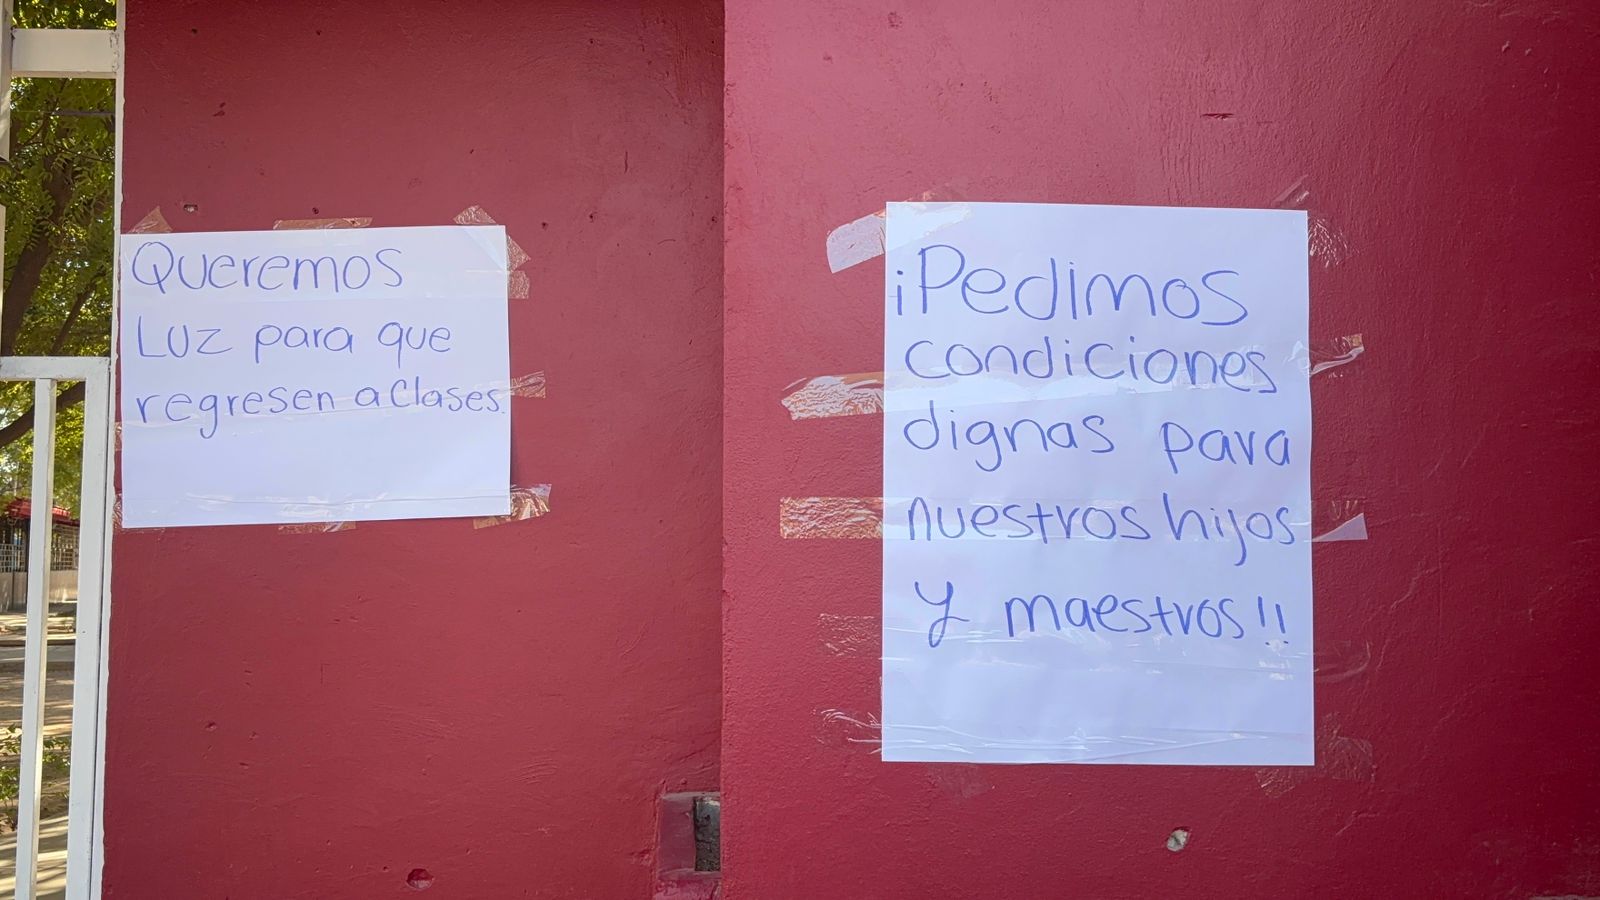 Queremos
Luz para que
regresen a Clases.
¡Pedimos
condiciones
dignas para
nuestros hijos
y maestros!!